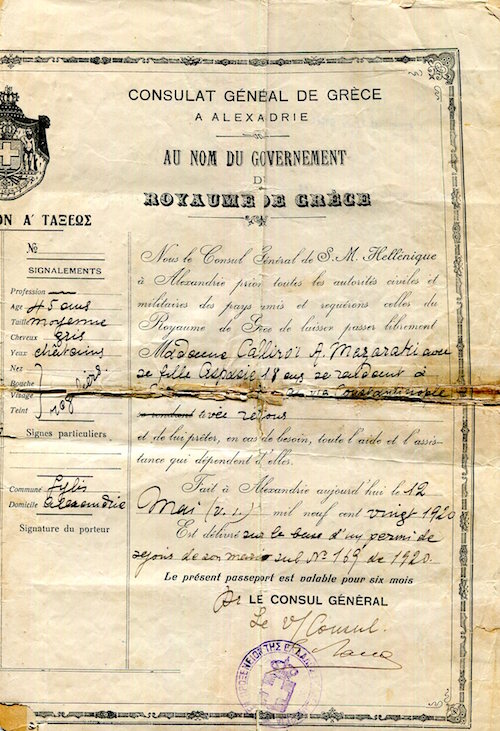 CONSULAT GÉNÉAL DE GRÈCE
A ALEXADRIE
AU NOM DU GOVERNEMENT
D
ROYAUME DE GRÈCE
ON Α' ΤΑΞΕΩΣ
No
SIGNALEMENTS
Profession
Age 45 ans
Taille moyenne
Cheveux gris
Yeux châtains
Nez
Bouche
Visage
Teint
Signes particuliers
Commune
Domicile Alexandrie
Signature du porteur
Nous le Consul Général de S. M. Hellénique
à Alexandrie prion toutes les autorités civiles et
militaires des pays amis et requérons celles du
Royaume de Gèce de laisser passer librement
Madame Calliroï A. Mezarati avec
se fille Aspasie 18 ans se rendant à
via Constantinople
avec retour
et de lui prêter, en cas de besoin, toute l'aide et l'assis-
tance qui dépendent d'elles.
Fait à Alexandrie aujourd'hui le 12
Mai (v. s.) mil neuf cent vingt 1920
Est délivré sur la base d'un permi de
sejour de son mari sub No 169 de 1920.
Le présent passeport est valable pour six mois
Pr LE CONSUL GÉNÉRAL
Le V/Consul